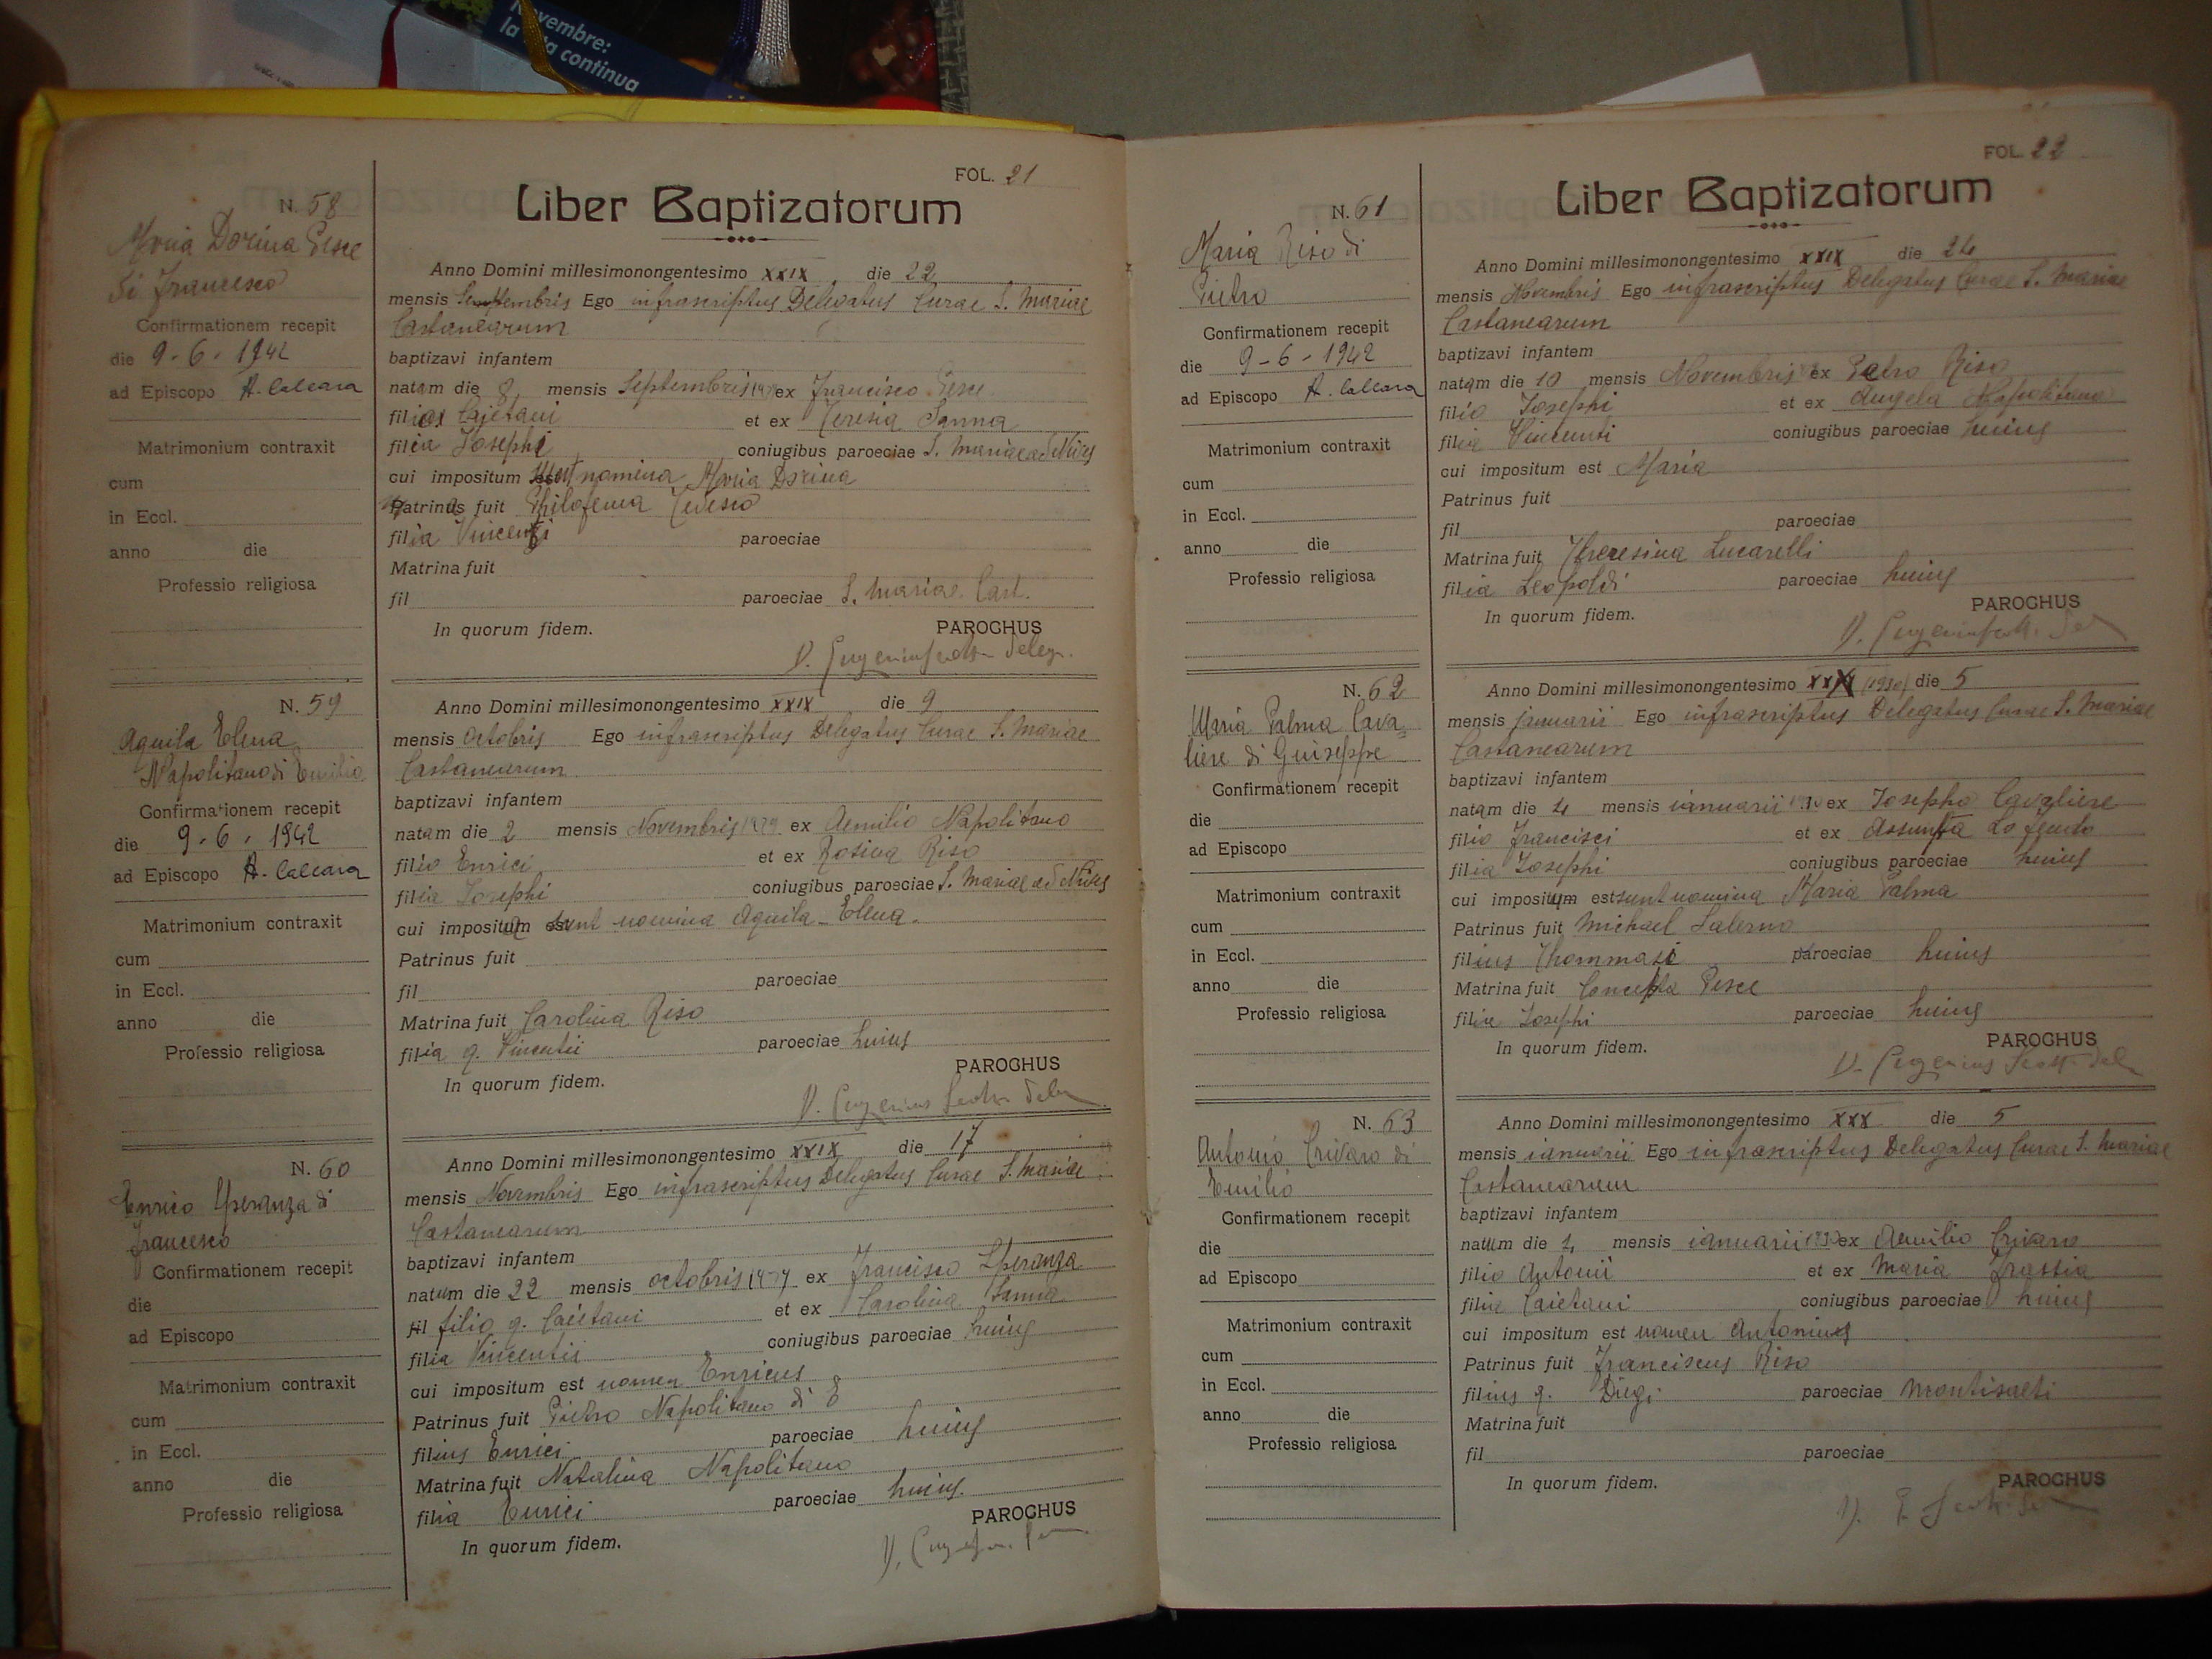 Novembre:
la vita continua
FOL. 21
Liber Baptizatorum
N. 58
Maria Dorina Pesce
di Francesco
Confirmationem recepit
die 9-6-1942
ad Episcopo A. Calcara
Matrimonium contraxit
cum
in Eccl.
anno die
Professio religiosa
Anno Domini millesimonongentesimo XXIX die 22
mensis Septembris Ego infrascriptus Delegatus Curae S. Mariae
Castanearum
baptizavi infantem
natam die 8 mensis Septembris 1929 ex Francisco Pesce
filio Cajetani et ex Teresia Sanna
filia Josephi coniugibus paroeciae S. Mariae ad Nives
cui impositum sunt nomina Maria Dorina
Matrina fuit Philofema Tedesco
filia Vincenzi paroeciae
Matrina fuit
fil paroeciae S. Mariae Cast.
In quorum fidem. PAROCHUS
D. Eugenius Scotti Deleg.
N. 59
Aquila Elena
Napolitano di Emilio
Confirmationem recepit
die 9-6-1942
ad Episcopo A. Calcara
Matrimonium contraxit
cum
in Eccl.
anno die
Professio religiosa
Anno Domini millesimonongentesimo XXIX die 9
mensis Octobris Ego infrascriptus Delegatus Curae S. Mariae
Castanearum
baptizavi infantem
natam die 2 mensis Novembris 1929 ex Aemilio Napolitano
filio Enrici et ex Rosina Riso
filia Josephi coniugibus paroeciae S. Mariae ad Nives
cui imposita sunt nomina Aquila-Elena.
Patrinus fuit
fil paroeciae
Matrina fuit Carolina Riso
filia q. Vincentii paroeciae huius
In quorum fidem. PAROCHUS
D. Eugenius Scotti Del
N. 60
Enrico Speranza di
Francesco
Confirmationem recepit
die
ad Episcopo
Matrimonium contraxit
cum
in Eccl.
anno die
Professio religiosa
Anno Domini millesimonongentesimo XXIX die 17
mensis Novembris Ego infrascriptus Delegatus Curae S. Mariae
Castanearum
baptizavi infantem
natum die 22 mensis octobris 1929 ex Francisco Speranza
fil filio q. Caietani et ex Carolina Sanna
filia Vincentii coniugibus paroeciae huius
cui impositum est nomen Enricus
Patrinus fuit Pietro Napolitano di E
filius Enrici paroeciae huius
Matrina fuit Natalina Napolitano
filia Enrici paroeciae huius.
In quorum fidem. PAROCHUS
FOL. 22
Liber Baptizatorum
N. 61
Maria Riso di
Pietro
Confirmationem recepit
die 9-6-1942
ad Episcopo A. Calcara
Matrimonium contraxit
cum
in Eccl.
anno die
Professio religiosa
Anno Domini millesimonongentesimo XXIX die 24
mensis Novembris Ego infrascriptus Delegatus Curae S. Mariae
Castanearum
baptizavi infantem
natam die 10 mensis Novembris ex Petro Riso
filio Josephi et ex Angela Napolitano
filia Vincenti coniugibus paroeciae huius
cui impositum est Maria
Patrinus fuit
fil paroeciae
Matrina fuit Theresina Lucarelli
filia Leopoldi paroeciae huius
In quorum fidem. PAROCHUS
D. Eugenius Scotti Del
N. 62
Maria Palma Cava=
liere di Guiseppe
Confirmationem recepit
die
ad Episcopo
Matrimonium contraxit
cum
in Eccl.
anno die
Professio religiosa
Anno Domini millesimonongentesimo XXX (1930) die 5
mensis januarii Ego infrascriptus Delegatus Curae S. Mariae
Castanearum
baptizavi infantem
natam die 4 mensis ianuarii 1930 ex Josepho Cavaliere
filio Francisci et ex Assunta Lo Feudo
filia Josephi coniugibus paroeciae huius
cui impositum est sunt nomina Maria Palma
Patrinus fuit Michael Salerno
filius Thommasi paroeciae huius
Matrina fuit Concetta Pesce
filia Josephi paroeciae huius
In quorum fidem. PAROCHUS
D. Eugenius Scotti Del
N. 63
Antonio Crivaro di
Emilio
Confirmationem recepit
die
ad Episcopo
Matrimonium contraxit
cum
in Eccl.
anno die
Professio religiosa
Anno Domini millesimonongentesimo XXX die 5
mensis ianuarii Ego infrascriptus Delegatus Curae S. Mariae
Castanearum
baptizavi infantem
natum die 1, mensis ianuarii 1930 ex Aemilio Crivaro
filio Antonii et ex Maria Grassia
filia Caietani coniugibus paroeciae huius
cui impositum est nomen Antonius
Patrinus fuit Franciscus Riso
filius q. Diegi paroeciae Montisalti
Matrina fuit
fil paroeciae
In quorum fidem. PAROCHUS
D. E. Scotti